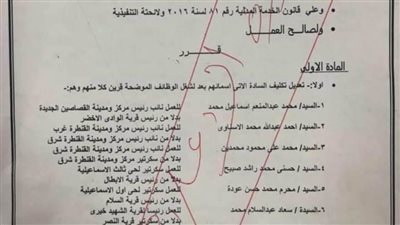 وعلي قانون الخدمة المدنية رقم ٨١ لسنة ٢٠١٦ ولائحتة التنفيذية
ولصالح العمل
قرر
المادة الاولي
اولا:- تعديل تكليف السادة الاتي اسمائهم بعد لشغل الوظائف الموضحة قرين كلا منهم وهم:-
١-السيد/ محمد عبدالمنعم اسماعيل محمد للعمل نائب رئيس مركز ومدينة القصاصين الجديدة
بدلا من رئيس قرية الوادى الاخضر
٢-السيد/ احمد عبدالله محمد الاسناوى للعمل نائب رئيس مركز ومدينة القنطرة غرب
بدلا من رئيس مركز ومدينة القنطرة شرق
٣-السيد/ محمد علي محمود محمدين للعمل رئيس مركز ومدينة القنطرة شرق
بدلا من سكرتير مركز ومدينة القنطرة شرق
٤-السيد/ حسنى محمد راشد صبيح للعمل سكرتير حى ثالث الاسماعيلية
بدلا من رئيس قرية الابطال
٥-السيد/ محرم محمد حسن عودة للعمل سكرتير لحى اول الاسماعيلية
بدلا من رئيس قرية السلام
٦-السيدة / سعاد عبدالسلام محمد للعمل رئيسا لقرية الشهيد خيرى
بدلا من سكرتير قرية النصر